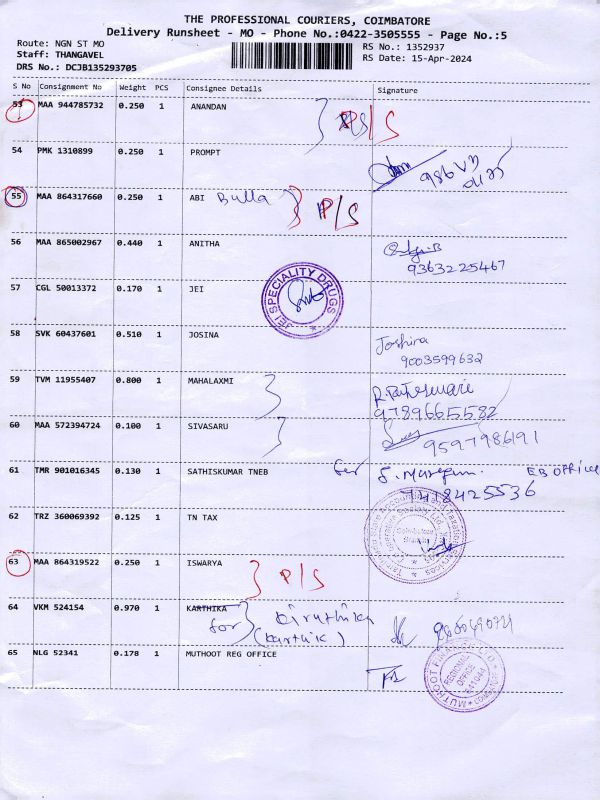 THE PROFESSIONAL COURIERS, COIMBATORE
Delivery Runsheet - MO - Phone No.:0422-3505555 - Page No.:5
Route: NGN ST MO
Staff: THANGAVEL
DRS No.: DCJB135293705
RS No.: 1352937
RS Date: 15-Apr-2024
S No Consignment No Weight PCS Consignee Details Signature
53 MAA 944785732 0.250 1 ANANDAN P/S
54 PMK 1310899 0.250 1 PROMPT
55 MAA 864317660 0.250 1 ABI Bulla P/S
56 MAA 865002967 0.440 1 ANITHA
9363225467
57 CGL 50013372 0.170 1 JEI
JEI SPECIALITY DRUGS
58 SVK 60437601 0.510 1 JOSINA Joshina
9003599632
59 TVM 11955407 0.800 1 MAHALAXMI
9789665582
60 MAA 572394724 0.100 1 SIVASARU
9597986191
61 TMR 901016345 0.130 1 SATHISKUMAR TNEB for S. Murugan. EB OFFICE
7418425536
62 TRZ 360069392 0.125 1 TN TAX
63 MAA 864319522 0.250 1 ISWARYA P/S
64 VKM 524154 0.970 1 KARTHIKA Kiruthika
for (Karthik)
65 NLG 52341 0.178 1 MUTHOOT REG OFFICE
REGIONAL
OFFICE